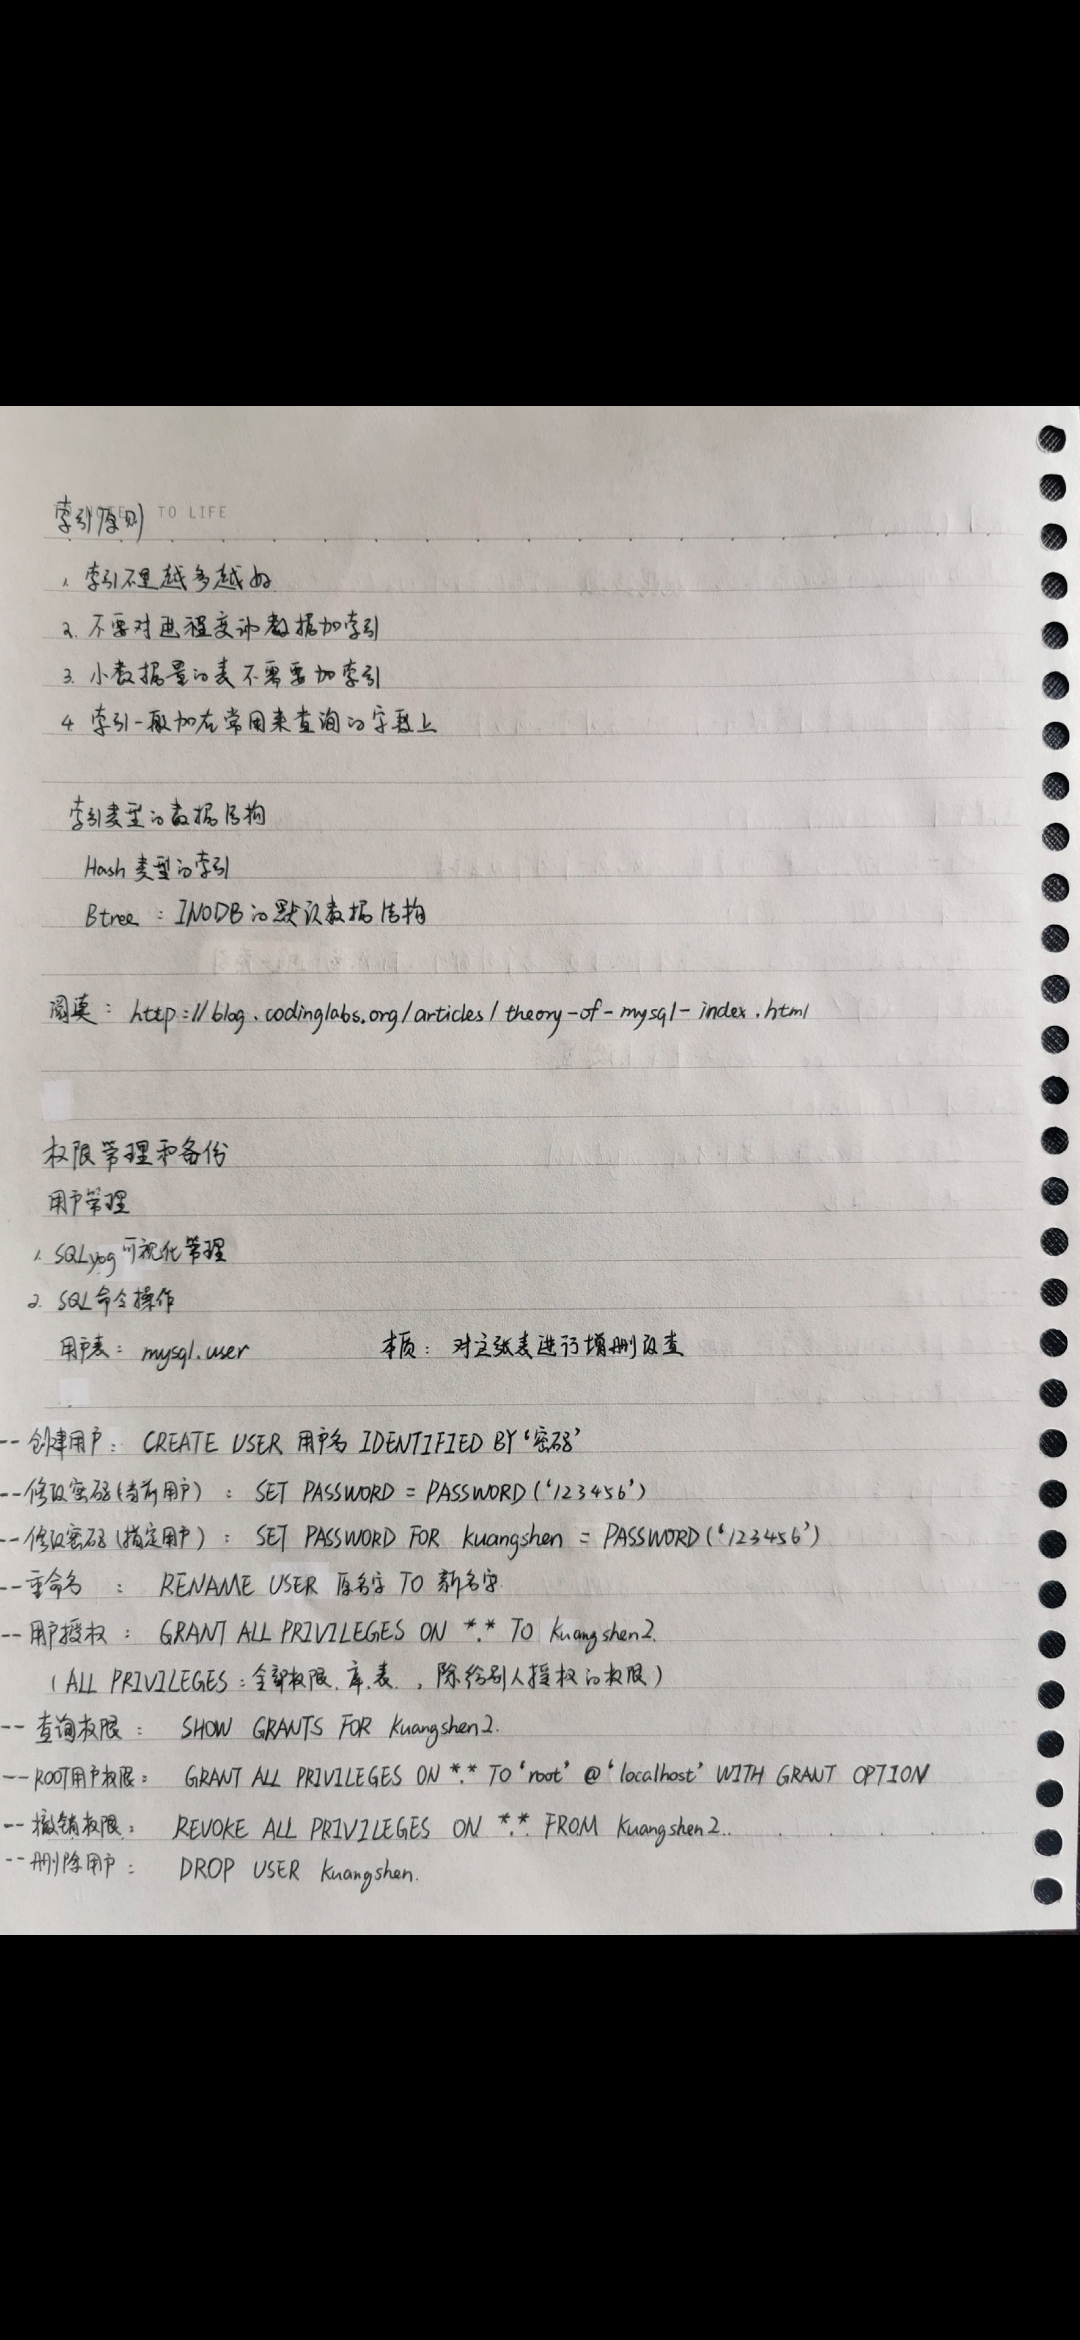 索引原则 TO LIFE
1. 索引不是越多越好
2. 不要对进程变动数据加索引
3. 小数据量的表不需要加索引
4. 索引一般加在常用来查询的字段上
索引类型的数据结构
Hash 类型的索引
Btree : INODB的默认数据结构
阅读: http://blog.codinglabs.org/articles/theory-of-mysql-index.html
权限管理和备份
用户管理
1. SQLyog 可视化管理
2. SQL命令操作
用户表: mysql.user 本质: 对这张表进行增删改查
--创建用户: CREATE USER 用户名 IDENTIFIED BY '密码'
--修改密码(当前用户) : SET PASSWORD = PASSWORD('123456')
--修改密码(指定用户) : SET PASSWORD FOR kuangshen = PASSWORD('123456')
--重命名 : RENAME USER 原名字 TO 新名字
--用户授权 : GRANT ALL PRIVILEGES ON *.* TO kuangshen2.
(ALL PRIVILEGES : 全部权限. 库.表. , 除给别人授权的权限)
--查询权限 : SHOW GRANTS FOR kuangshen2.
--ROOT用户权限: GRANT ALL PRIVILEGES ON *.* TO 'root' @ 'localhost' WITH GRANT OPTION
--撤销权限: REVOKE ALL PRIVILEGES ON *.* FROM kuangshen2.
--删除用户: DROP USER kuangshen.